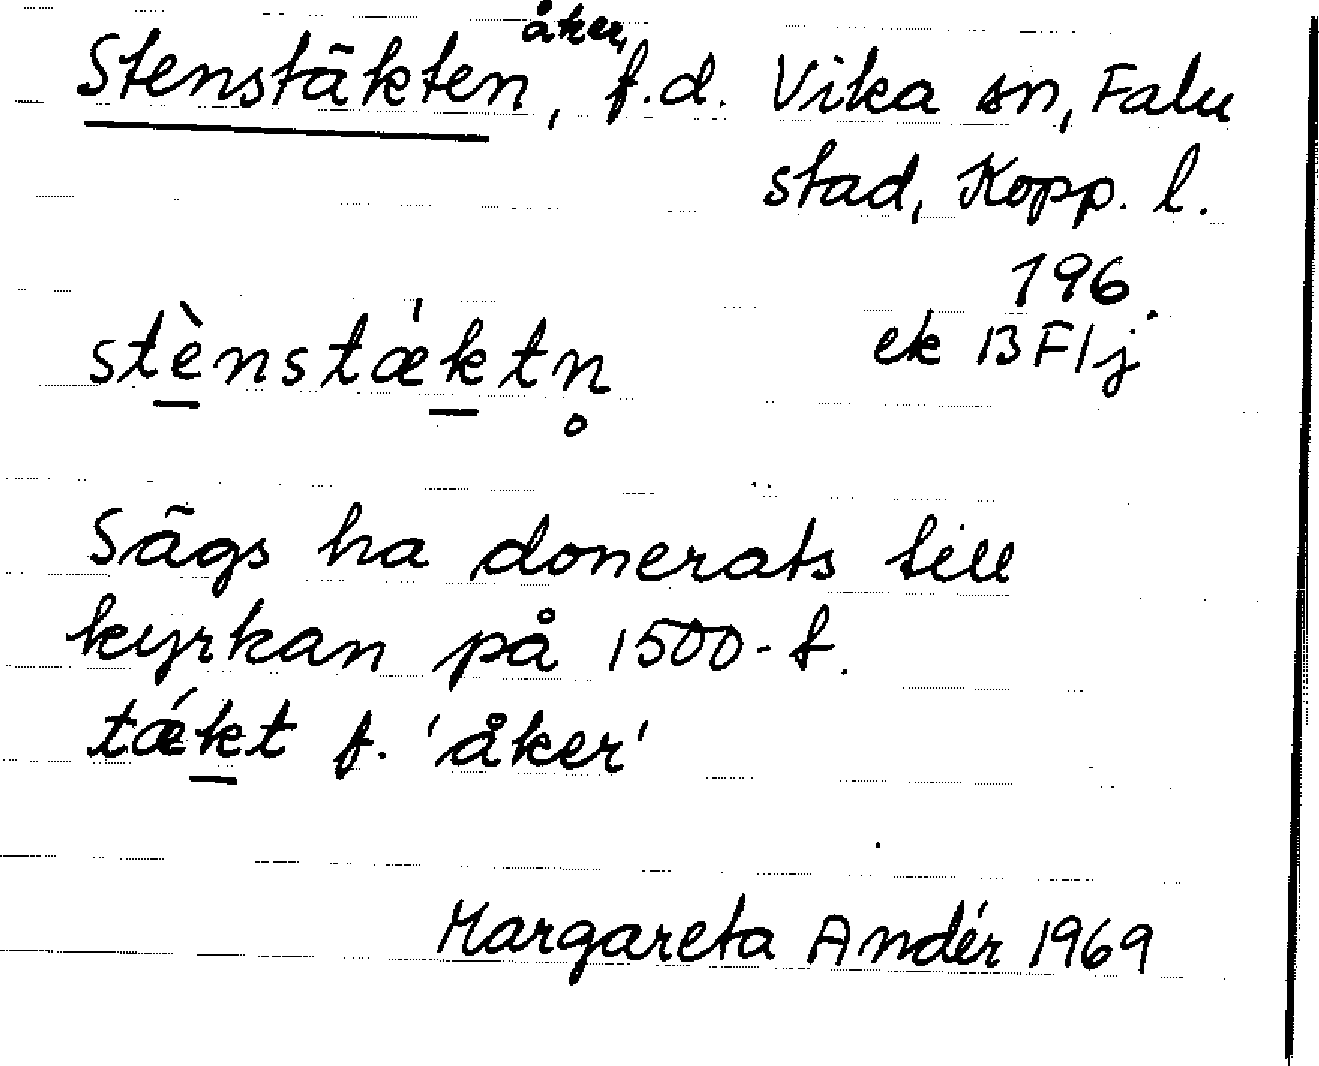 Stenstäkten, åker, f.d. Vika sn, Falu
stad, Kopp. l.
196
stènstǽktn̥
ek 13 F1j
Sägs ha donerats till
kyrkan på 1500-t.
tǽkt f. 'åker'
Margareta Andér 1969